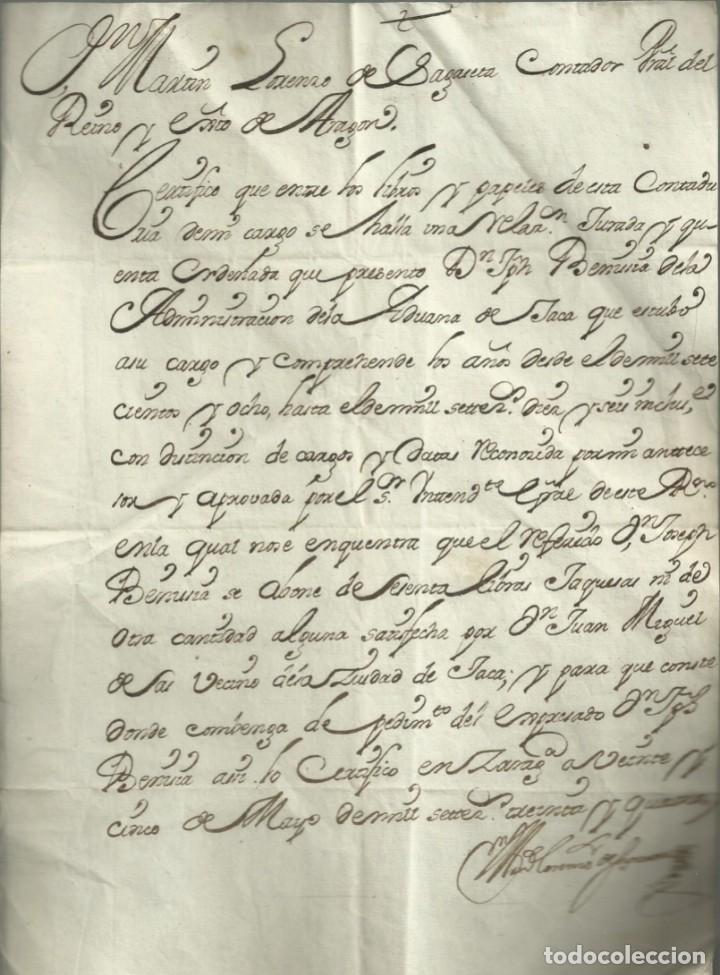 Dn Martin Lorenzo de Zagasta Contador Pral del
Reino y Exto de Aragon.
Certifico que entre los libros y papeles de esta Contadu
ria demi cargo se halla una Relazn Jurada y qu
enta Ordenada que presento Dn Jph dela
Administracion dela Aduana de Jaca que estubo
asu cargo y comprehende los años desde el demill sete
cientos y ocho, hasta el demill settezs diez y seis inclusve
con distincion de cargos y datas reconozida pormi antece
sor y aprovada por el Sr Intendte Gral de este Rno
enla qual nose enquentra que el referido Dn Joseph
se abone de sesenta libras Jaquesas ni de
otra cantidad alguna satisfecha por Dn Juan Miguel
de Sas vecino dela Ziudad de Jaca; y para que conste
donde combenga de pedimto del expresado Dn Jph
asi lo Certifico en Zaragza a Veinte y
cinco de Mayo demill settezs treinta y
todocoleccion.net